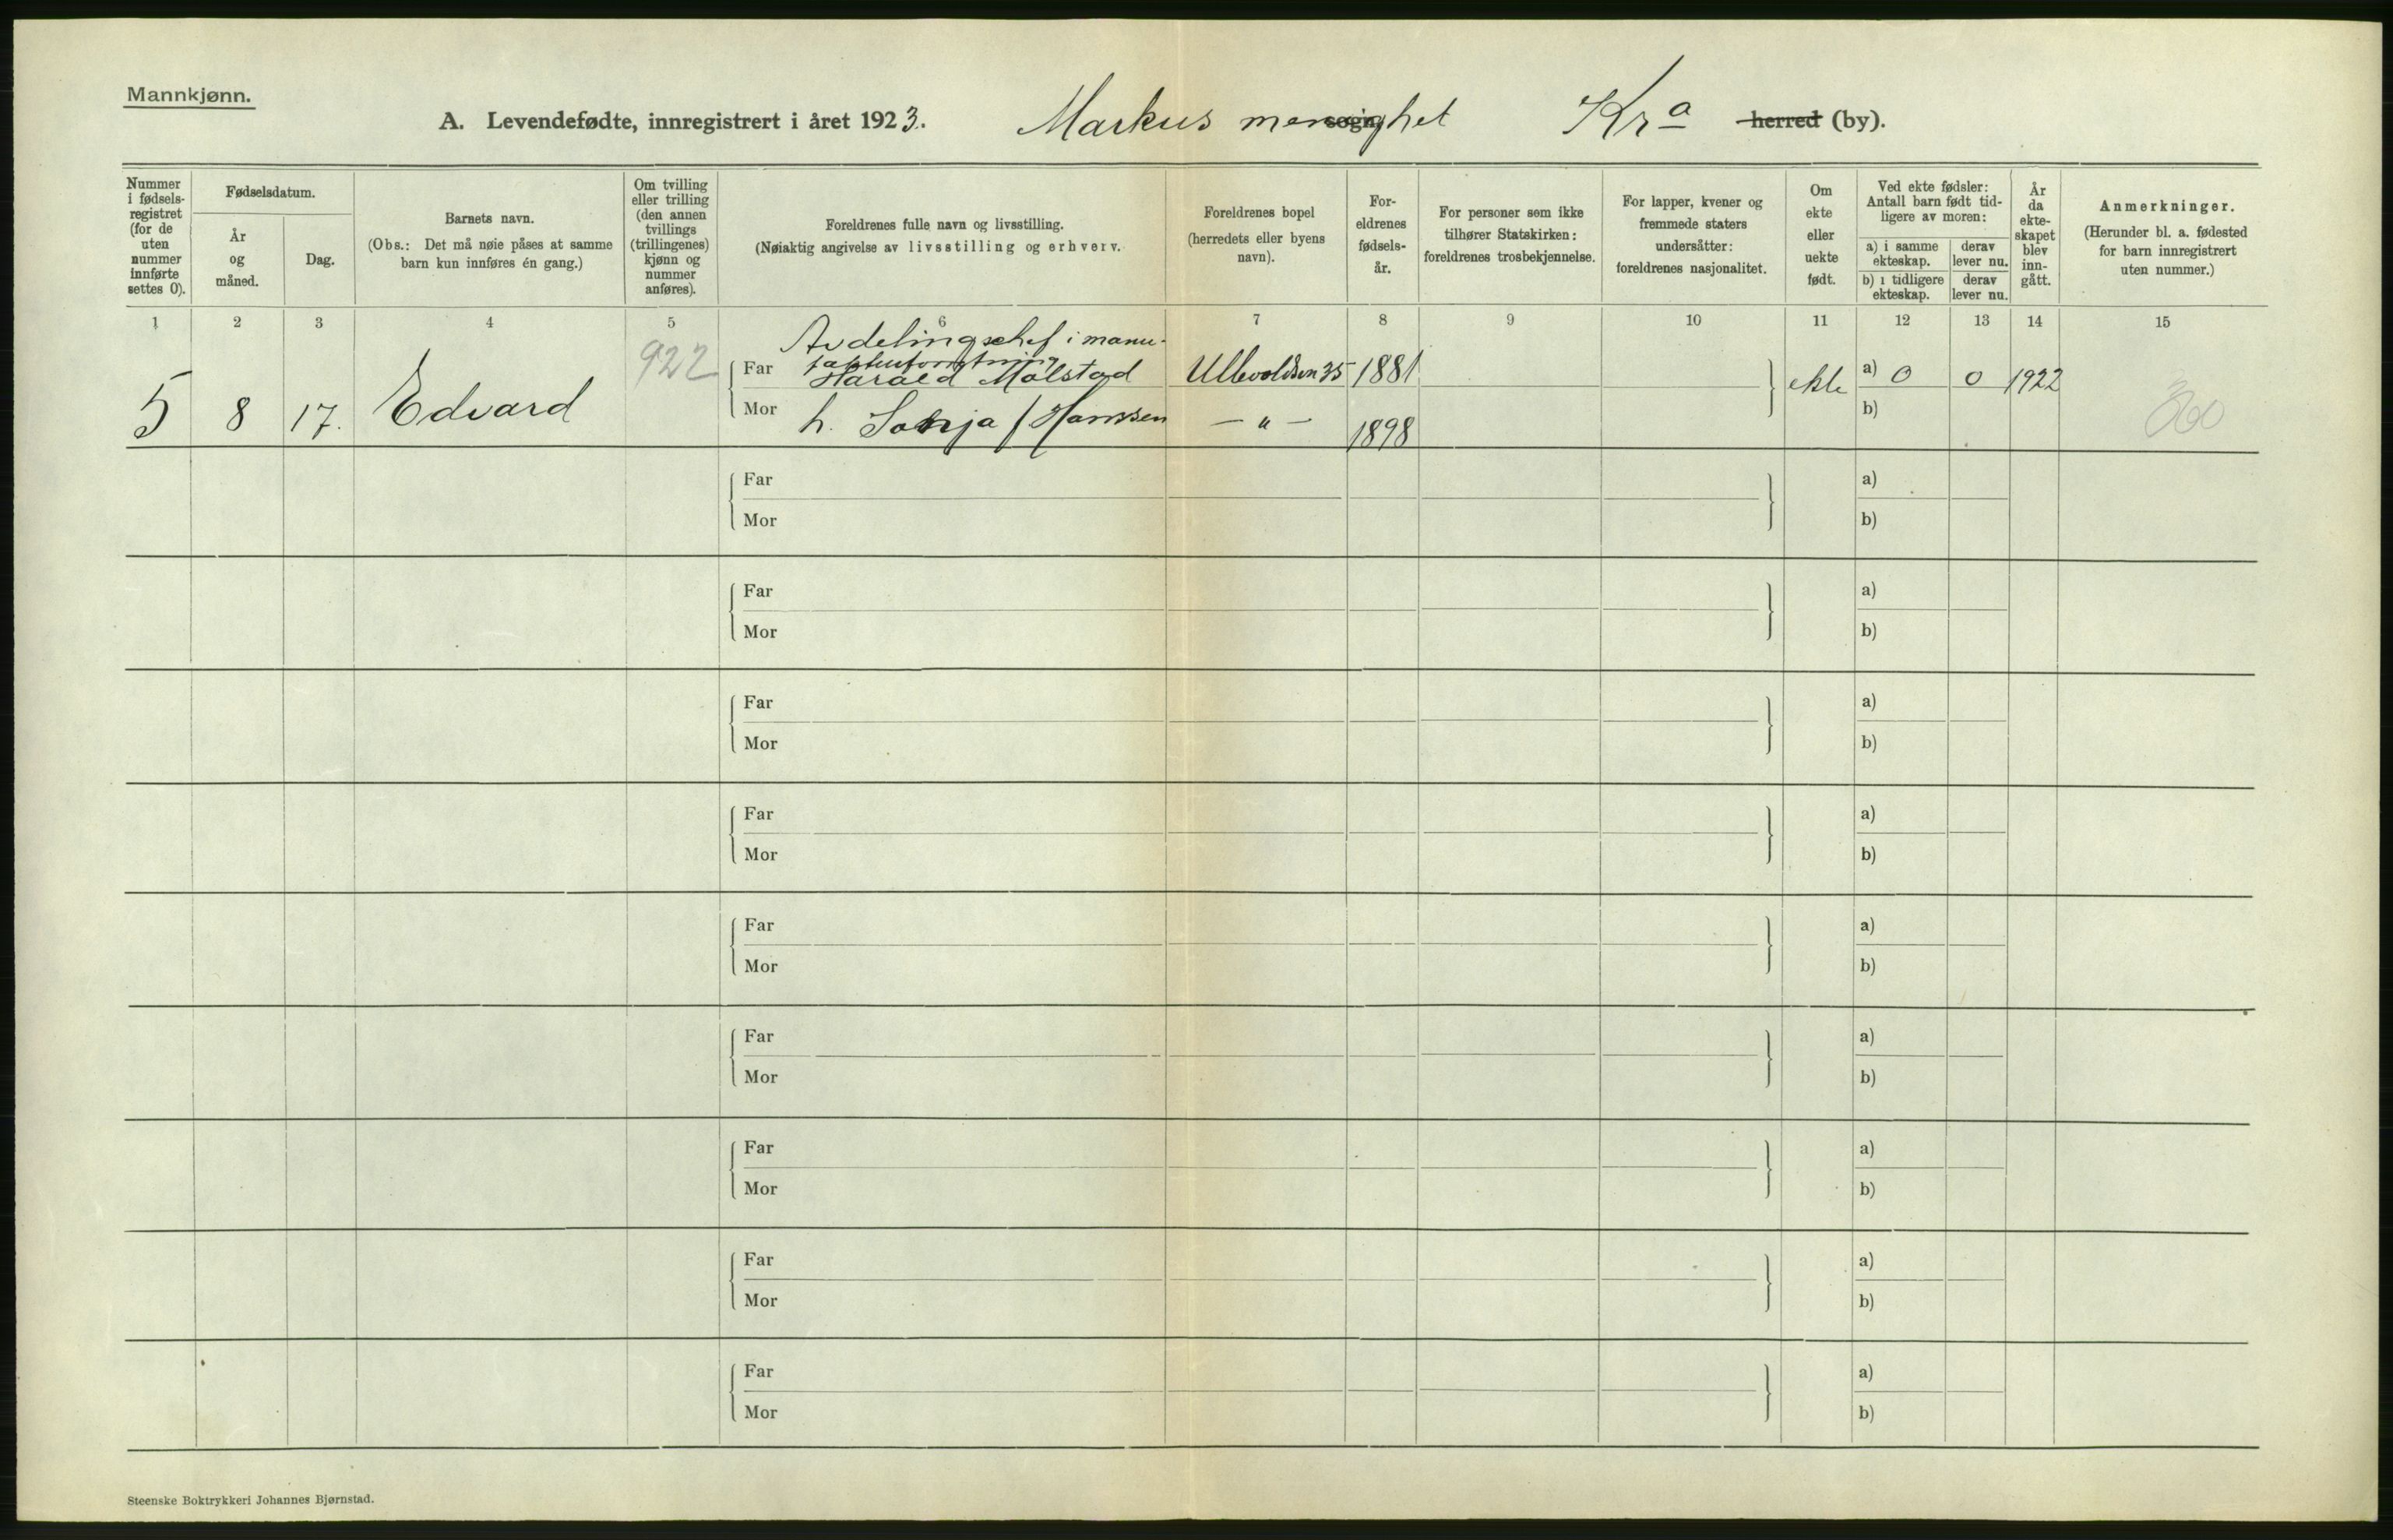 Mannkjønn.
A. Levendefødte, innregistrert i året 1923. Markus menighet sogn Kra herred (by).
Nummer i fødsels-registret (for de uten nummer innførte settes 0).
Fødselsdatum.
År og måned.
Dag.
Barnets navn.
(Obs.: Det må nøie påses at samme barn kun innføres én gang.)
Om tvilling eller trilling (den annen tvillings (trillingenes) kjønn og nummer anføres).
Foreldrenes fulle navn og livsstilling.
(Nøiaktig angivelse av livsstilling og erhverv.
Foreldrenes bopel (herredets eller byens navn).
For-eldrenes fødsels-år.
For personer som ikke tilhører Statskirken: foreldrenes trosbekjennelse.
For lapper, kvener og fremmede staters undersåtter: foreldrenes nasjonalitet.
Om ekte eller uekte født.
Ved ekte fødsler: Antall barn født tid-ligere av moren:
a) i samme ekteskap.
derav lever nu.
b) i tidligere ekteskap.
derav lever nu.
År da ekte-skapet blev inn-gått.
Anmerkninger.
(Herunder bl. a. fødested for barn innregistrert uten nummer.)
1 2 3 4 5 6 7 8 9 10 11 12 13 14 15
Avdelingschef i manu-
922
Far Harald Mølstad Ullevoldsvn 35 1881 ekte a) 0 0 1922
5 8 17. Edvard
Mor h. Sonja f Hanssen — " — 1898 b)
Far a)
Mor b)
Far a)
Mor b)
Far a)
Mor b)
Far a)
Mor b)
Far a)
Mor b)
Far a)
Mor b)
Far a)
Mor b)
Far a)
Mor b)
Far a)
Mor b)
Steenske Boktrykkeri Johannes Bjørnstad.